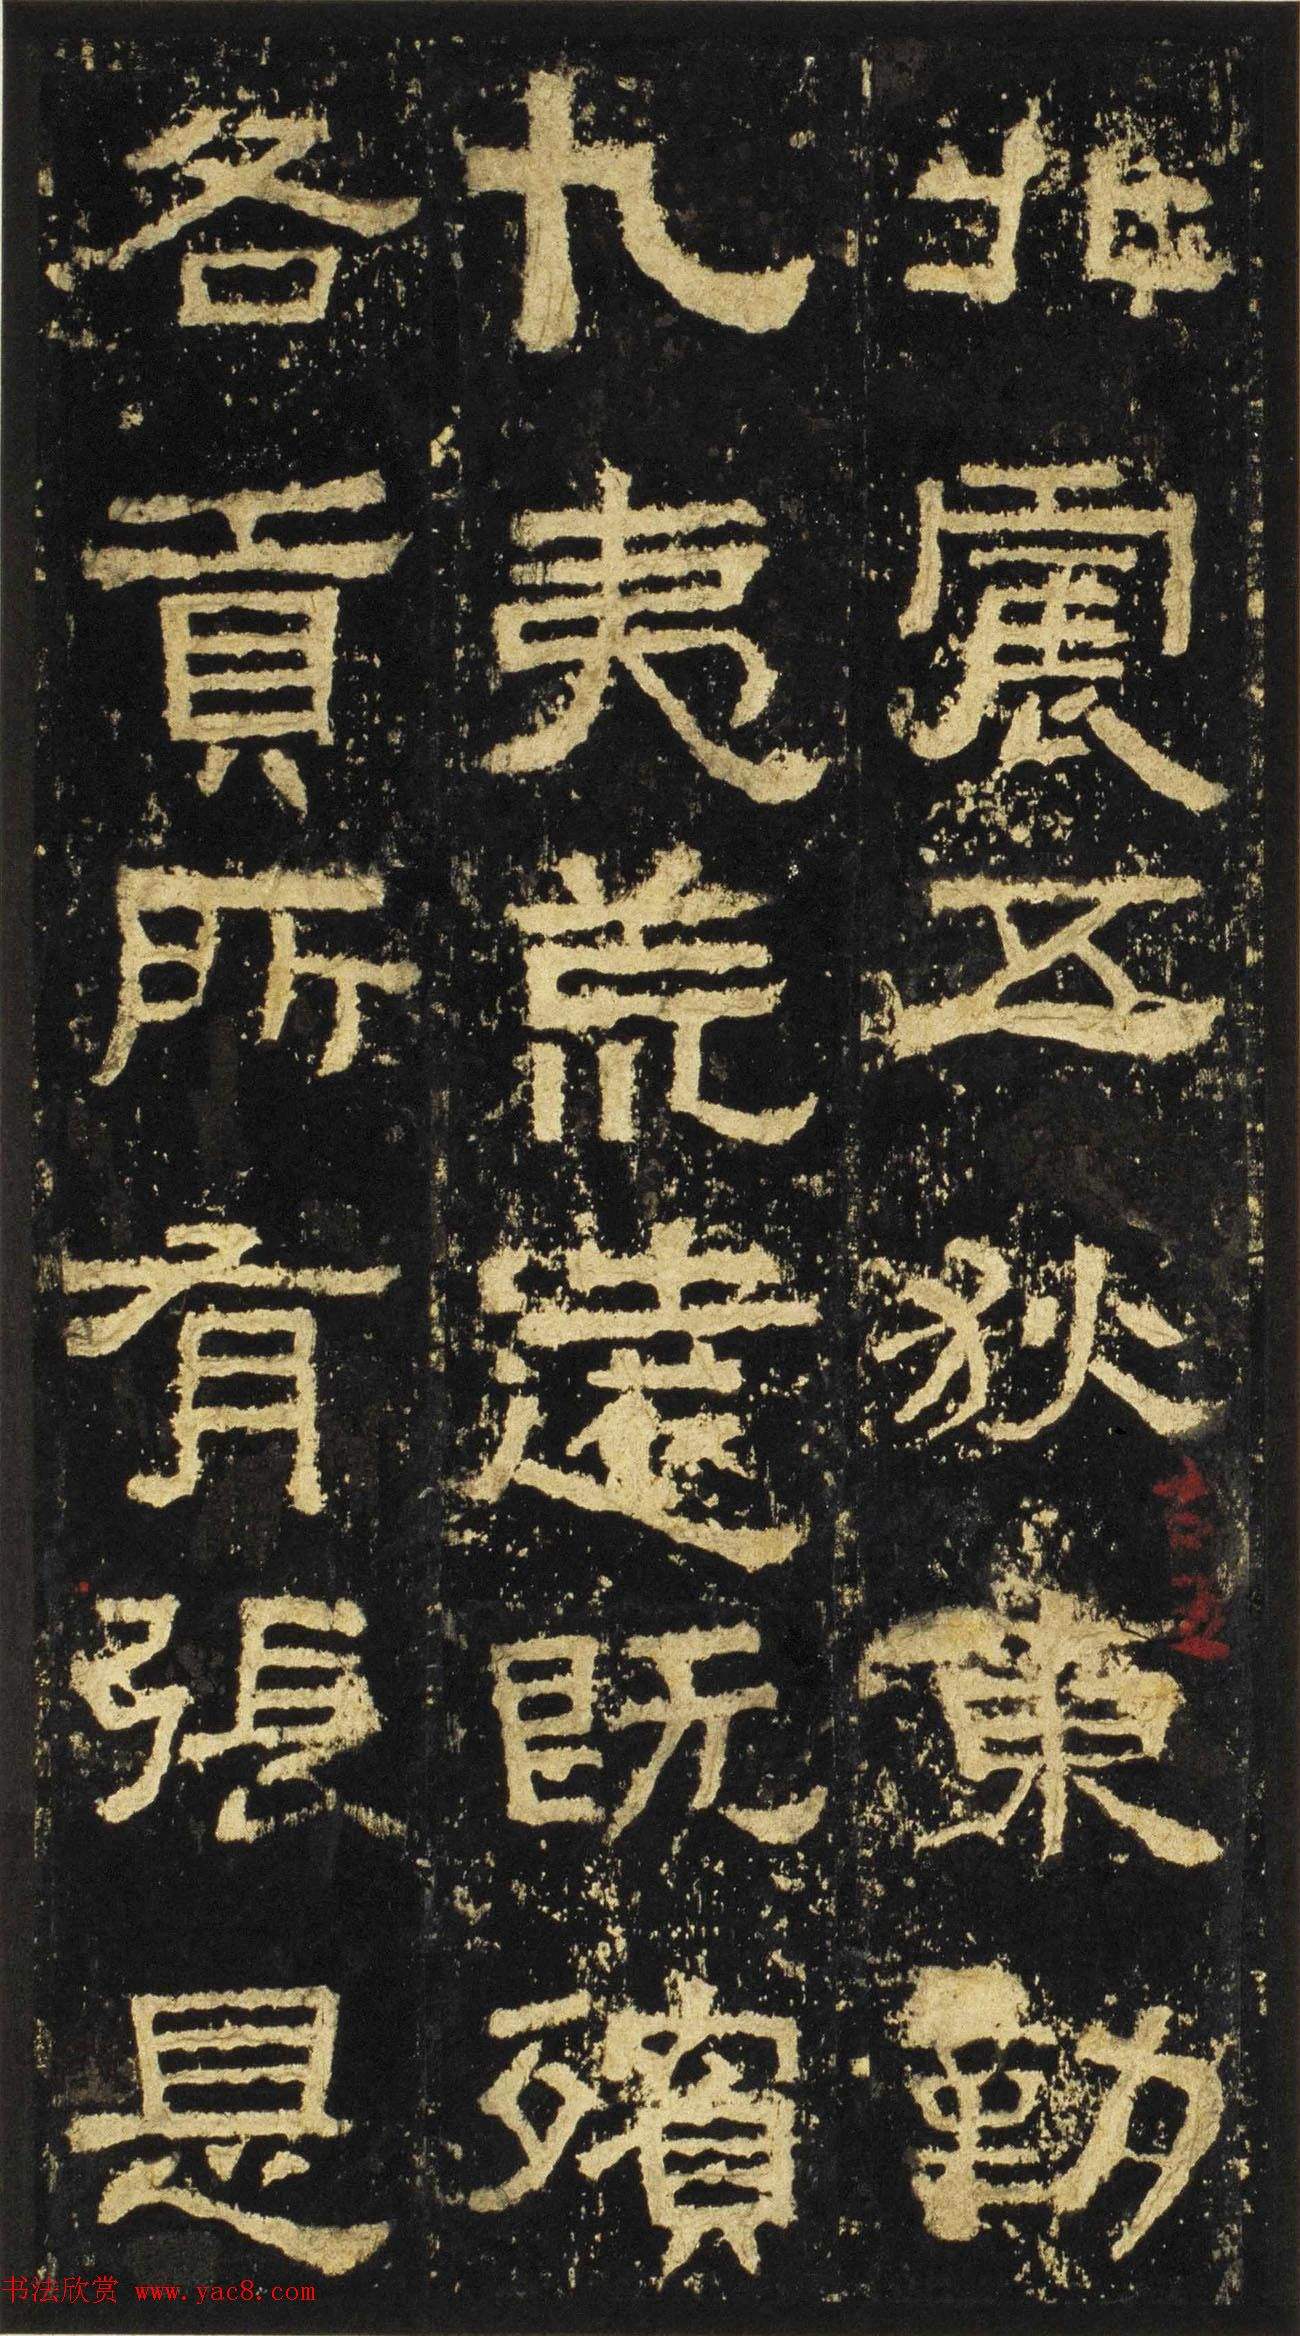 北震五狄東勤
九夷荒遠既殯
各貢所有張是
书法欣赏 www.yac8.com